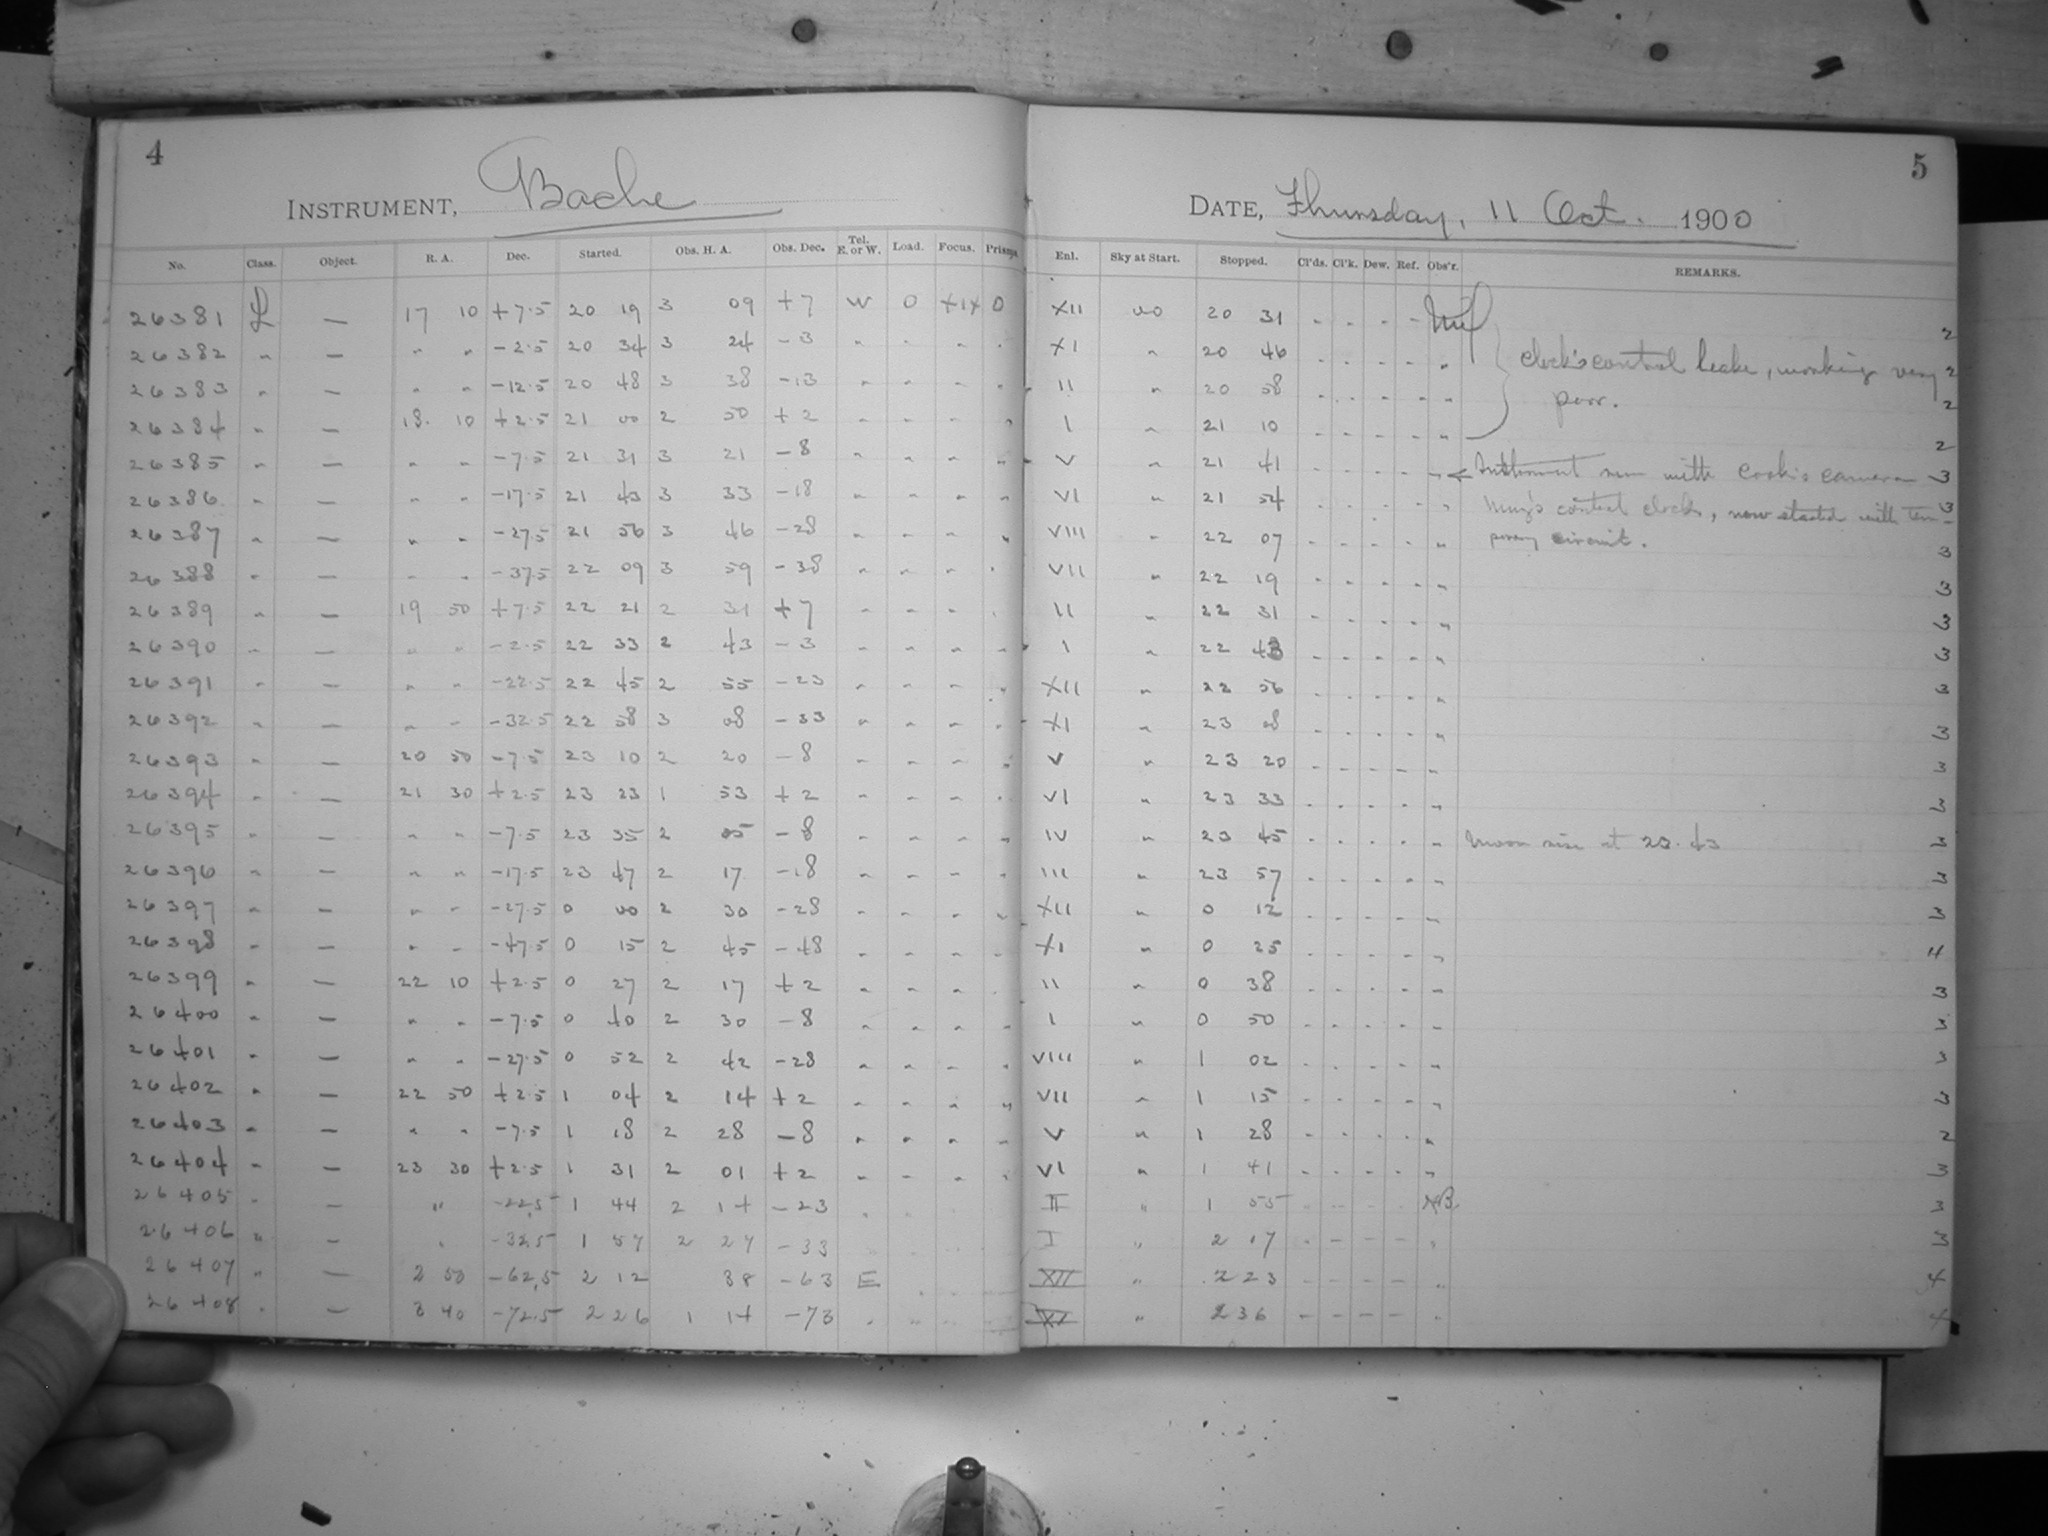 4
INSTRUMENT, Bache
No. Class. Object. R. A. Dec. Started. Obs. H. A. Obs. Dec. Tel. E. or W. Load. Focus. Prisms.
26381 L — 17 10 +7.5 20 19 3 09 +7 W 0 +14 0
26382 " — " " -2.5 20 34 3 24 -3 " " " "
26383 " — " " -12.5 20 48 3 38 -13 " " " "
26384 " — 18 10 +2.5 21 00 2 50 +2 " " " "
26385 " — " " -7.5 21 31 3 21 -8 " " " "
26386 " — " " -17.5 21 43 3 33 -18 " " " "
26387 " — " " -27.5 21 56 3 46 -28 " " " "
26388 " — " " -37.5 22 09 3 59 -38 " " " "
26389 " — 19 50 +7.5 22 21 2 31 +7 " " " "
26390 " — " " -2.5 22 33 2 43 -3 " " " "
26391 " — " " -22.5 22 45 2 55 -23 " " " "
26392 " — " " -32.5 22 58 3 08 -33 " " " "
26393 " — 20 50 -7.5 23 10 2 20 -8 " " " "
26394 " — 21 30 +2.5 23 23 1 53 +2 " " " "
26395 " — " " -7.5 23 35 2 05 -8 " " " "
26396 " — " " -17.5 23 47 2 17 -18 " " " "
26397 " — " " -27.5 0 00 2 30 -28 " " " "
26398 " — " " -47.5 0 15 2 45 -48 " " " "
26399 " — 22 10 +2.5 0 27 2 17 +2 " " " "
26400 " — " " -7.5 0 40 2 30 -8 " " " "
26401 " — " " -27.5 0 52 2 42 -28 " " " "
26402 " — 22 50 +2.5 1 04 2 14 +2 " " " "
26403 " — " " -7.5 1 18 2 28 -8 " " " "
26404 " — 23 30 +2.5 1 31 2 01 +2 " " " "
26405 " — " -22.5 1 44 2 14 -23 " " "
26406 " — " -32.5 1 57 2 27 -33 "
26407 " — 2 50 -62.5 2 12 38 -63 E
26408 " — 3 40 -72.5 2 26 1 14 -73 " "
5
DATE, Thursday, 11 Oct. 1900
Enl. Sky at Start. Stopped. Cl'ds. Cl'k. Dew. Ref. Obs'r. REMARKS.
XII 20 31 - - - - 2
XI " 20 46 - - - - " clock's control leake, working very 2
II " 20 58 - - - - " poor. 2
I " 21 10 - - - - " 2
V " 21 41 - - - - " Instrument run with Cook's camera 3
VI " 21 54 - - - - " control clock, now started with tem- 3
VIII " 22 07 - - - - " porary circuit. 3
VII " 22 19 - - - - " 3
II " 22 31 - - - - " 3
I " 22 43 - - - - " 3
XII " 22 56 - - - - " 3
XI " 23 08 - - - - " 3
V " 23 20 - - - - " 3
VI " 23 33 - - - - " 3
IV " 23 45 - - - - " Moon rise at 23.43 3
III " 23 57 - - - - " 3
XII " 0 12 - - - - " 3
XI " 0 25 - - - - " 4
II " 0 38 - - - - " 3
I " 0 50 - - - - " 3
VIII " 1 02 - - - - " 3
VII " 1 15 - - - - " 3
V " 1 28 - - - - " 2
VI " 1 41 - - - - " 3
II " 1 55 - - - - 3
I " 2 17 - - - - " 3
XII " 2 23 - - - - " 4
XI " 2 36 - - - - " 4